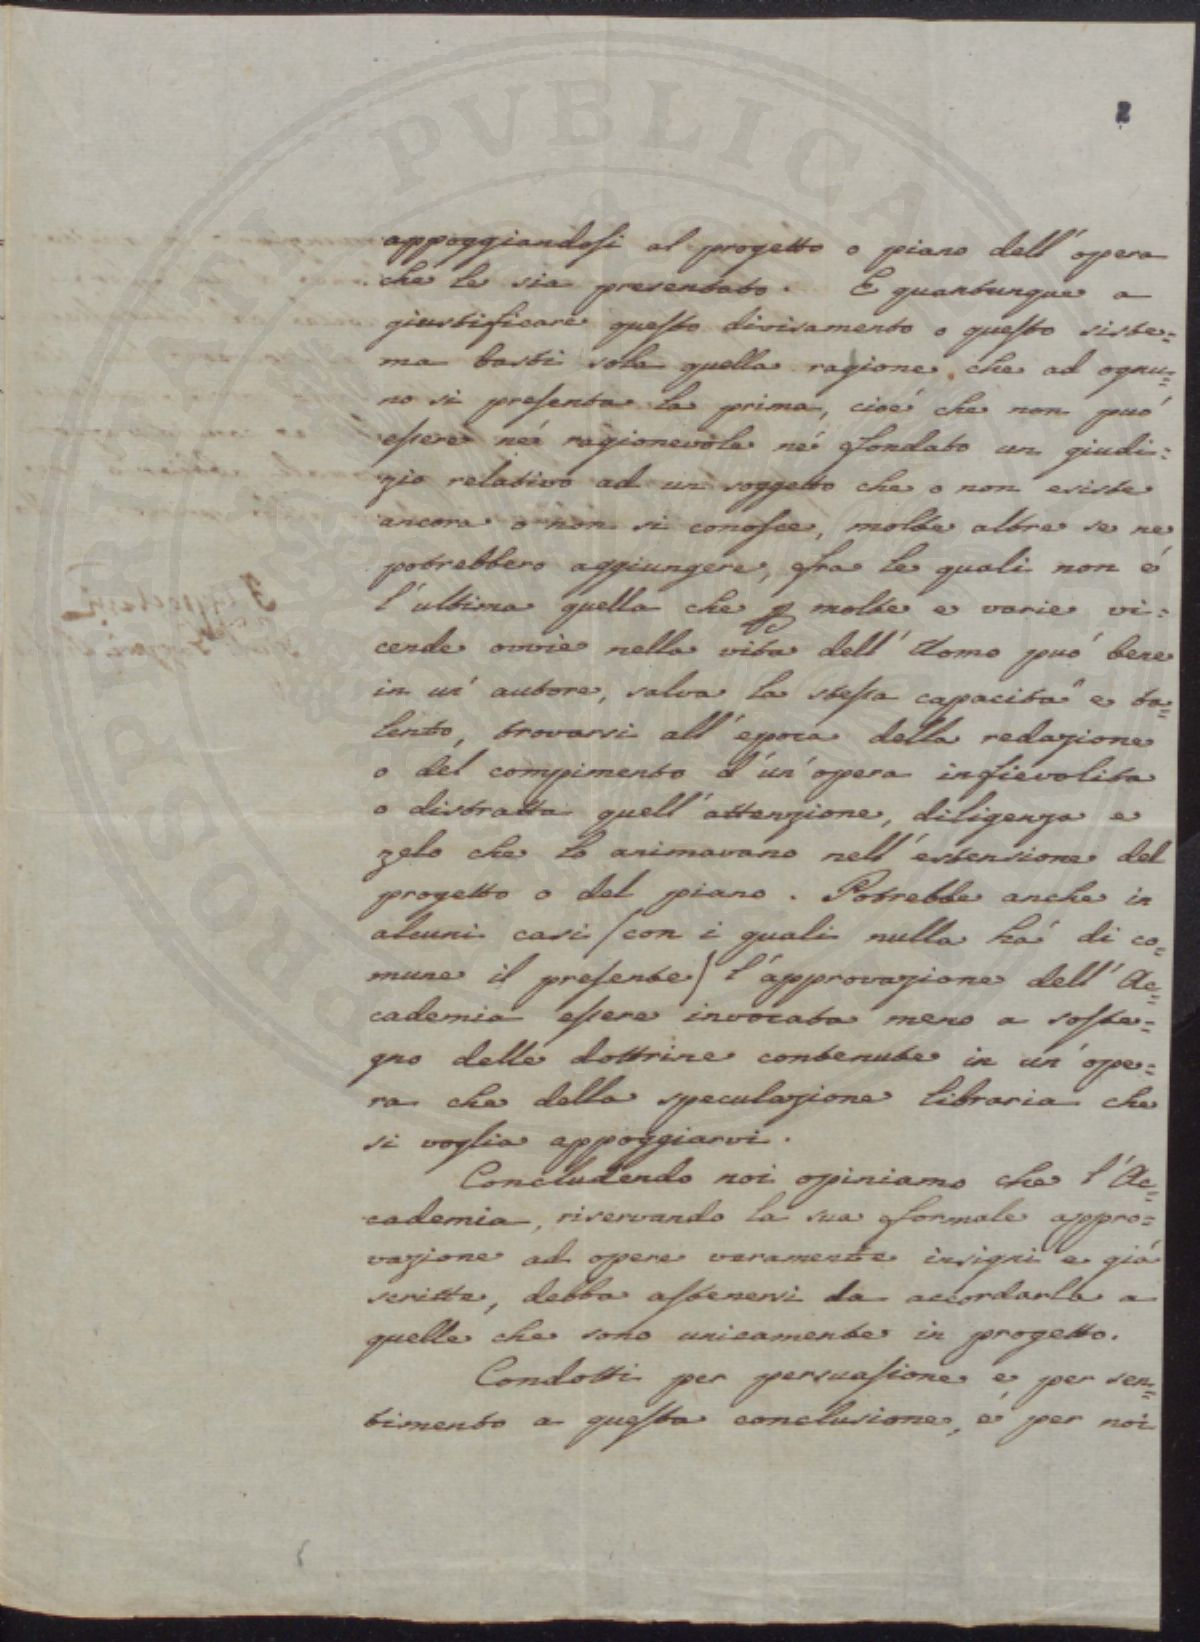 PROSPERITATI PVBLICAE
2
appoggiandosi al progetto o piano dell'opera
che le sia presentato. E quantunque a
giustificare questo divisamento o questo siste=
ma basti sola quella ragione che ad ognu=
no si presenta la prima, cioé che non può
essere né ragionevole né fondato un giudi=
zio relativo ad un soggetto che o non esiste
ancora o non si conosce, molte altre se ne
potrebbero aggiungere, fra le quali non é
l'ultima quella che p molte e varie vi=
cende ovvie nella vita dell'Uomo può bene
in un' autore, salva la stessa capacità e ta=
lento, trovarsi all'epoca della redazione
o del compimento d'un'opera infievolita
o distratta quell'attenzione, diligenza e
zelo che lo animavano nell'estensione del
progetto o del piano. Potrebbe anche in
alcuni casi (con i quali nulla há di co=
mune il presente) l'approvazione dell'Ac=
cademia essere invocata meno a soste=
gno delle dottrine contenute in un'ope=
ra che della speculazione libraria che
si voglia appoggiarvi.
Concludendo noi opiniamo che l'Ac=
cademia, riservando la sua formale appro=
vazione ad opere veramente insigni e già
scritte, debba astenersi da accordarla a
quelle che sono unicamente in progetto.
Condotti per persuasione e per sen=
timento a questa conclusione, é per noi